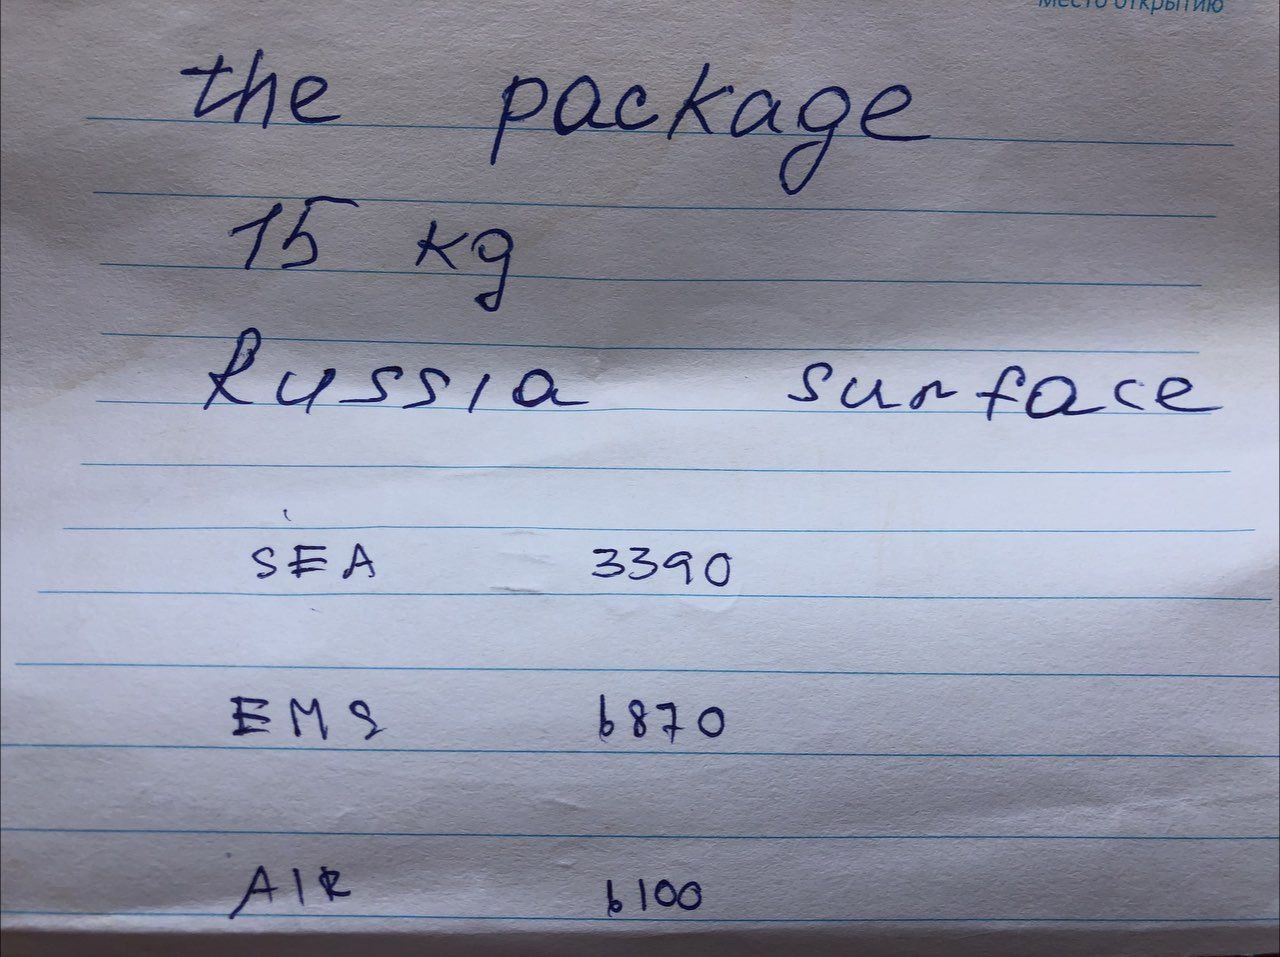 Место открытию
the package
15 kg
Russia surface
SEA 3390
EMS 6870
AIR 6100